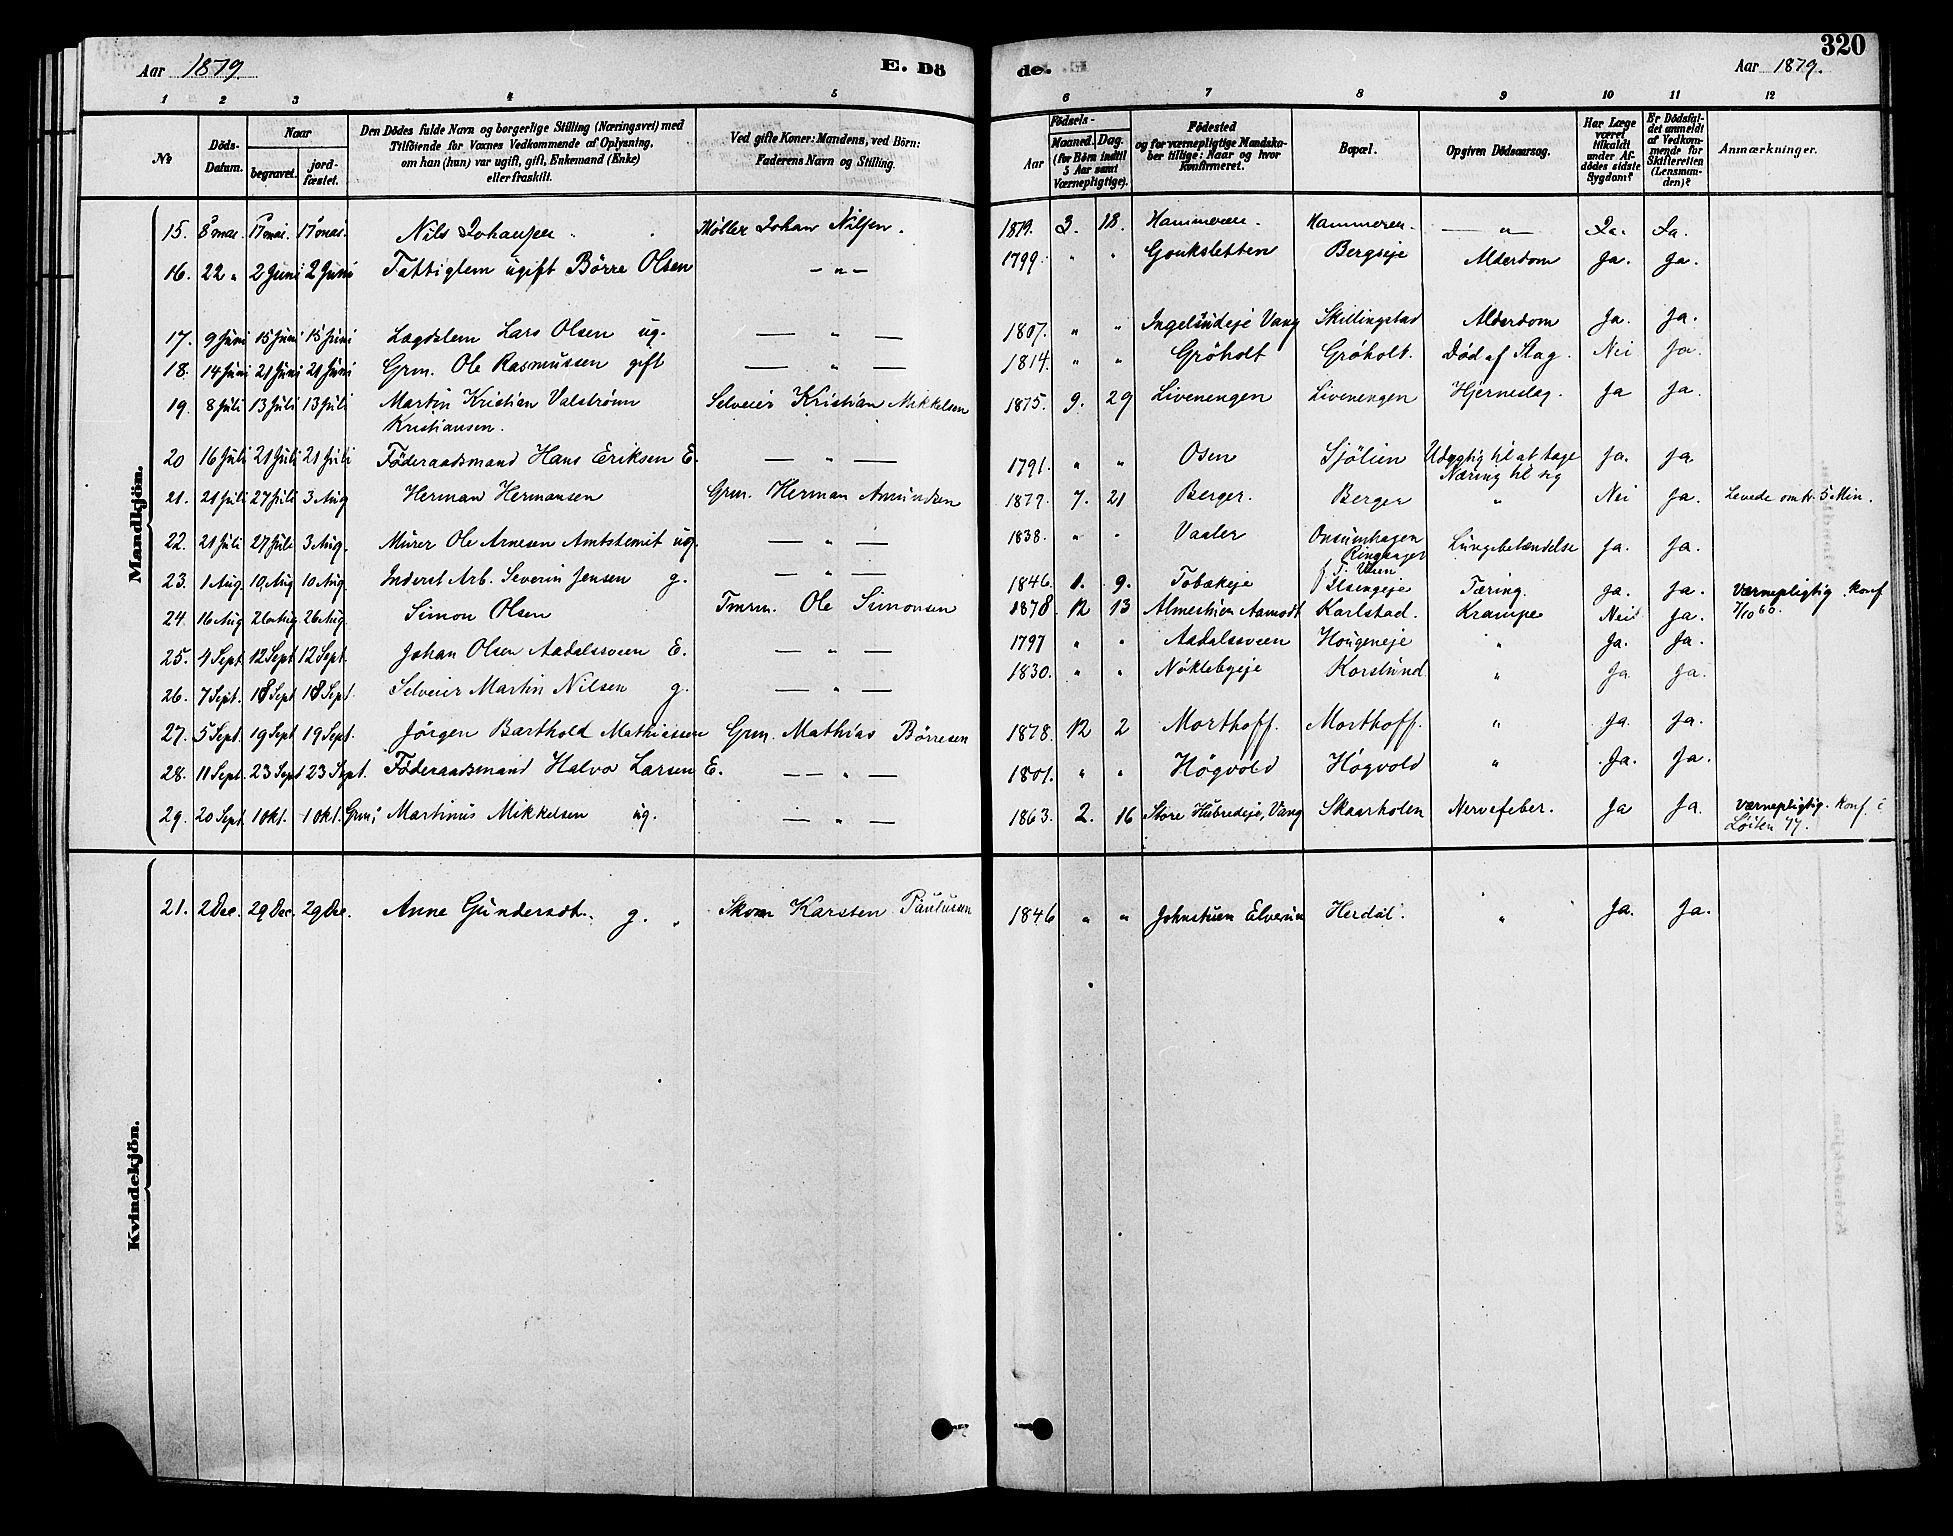 320
Aar 1879. E. Dö de. Aar 1879.
1 2 3 4 5 6 7 8 9 10 11 12
№
Döds-Datum.
Naar
begravet.
jord-fæstet.
Den Dödes fulde Navn og borgerlige Stilling (Næringsvei) med
Tilföiende for Voxnes Vedkommende af Oplysning,
om han (hun) var ugift, gift, Enkemand (Enke)
eller fraskilt.
Ved gifte Koner: Mandens, ved Börn:
Faderens Navn og Stilling.
Födsels-
Aar
Maaned. Dag.
(for Börn indtil
5 Aar samt
Værnepligtige).
Födested
og for værnepligtige Mandska-
ber tillige: Naar og hvor
Konfirmeret.
Bopæl.
Opgiven Dödsaarsag.
Har Læge
været
tilkaldt
under Af-
dödes sidste
Sygdom?
Er Dödsfal-
det anmeldt
af Vedkom-
mende for
Skifteretten
(Lensman-
den)?
Anmærkninger.
Mandkjön.
15. 8 mai. 17 mai. 17 mai. Nils Johansen Møller Johan Nilsen. 1879. 3. 18. Hammeren. Hammeren. — " — Ja. Ja.
16. 22 " 2 Juni 2 Juni Fattiglem ugift Börre Olsen — " — 1799. " " Gouksletten Bergseje Alderdom Ja. Ja.
17. 9 Juni 15 Juni 15 Juni Lægdslem Lars Olsen ug. — " — 1807. " " Vang Skillingstad Alderdom Ja. Ja.
18. 14 Juni 21 Juni 21 Juni Grm. Ole Rasmussen gift — " — 1814. " " Gröholt Gröholt. Död af Slag. Nei Ja.
19. 8 Juli 13 Juli 13 Juli Martin Kristian Valström Selveier Kristian Mikkelsen 1875. 9. 29 Livenengen Livenengen Hjerneslag. Ja Ja.
Kristiansen.
20 16 Juli 21 Juli 21 Juli Föderaadsmand Hans Eriksen E. — " — 1791. " " Osen Sjölien Udygtig til at tage Ja. Ja.
Næring til sig
21. 21 Juli 27 Juli 3 Aug Herman Hermansen Grm. Herman Amundsen 1879. 7. 21 Berger. Berger " Nei Ja. Levede omtr. 5 Min.
22. 21 Juli 27 Juli 3 Aug. Murer Ole Arnesen ug. — " — 1838. " " Vaaler Lungebetændelse Ja. Ja.
Ringsager
23. 1 Aug. 10 Aug 10 Aug. Inderst Arb. Severin Jensen g. — " — 1846. 1. 9. Tobækeje Ilsengeje Tæring. Ja. Ja. Værnepligtig. Konf
7/10 60.
24. 16 Aug 26 Aug. 26 Aug. Simon Olsen Tmrm. Ole Simonsen 1878 12 13 Aamodt Karlstad. Krampe Nei Ja.
25. 4 Sept 12 Sept 12 Sept. Johan Olsen Aadalssveen E. — " — 1797 " " Aadalssveen Hougeneje " Ja. Ja.
26. 7 Sept. 18 Sept 18 Sept. Selveier Martin Nilsen g. — " — 1830. " " Nöklebyeje Korslund. " Ja Ja.
27. 5 Sept. 19 Sept 19 Sept. Jörgen Barthold Mathiassen Grm. Mathias Börresen 1878. 12 2 Morthoff. Morthoff. " Ja Ja.
28. 11 Sept. 23 Sept 23 Sept. Föderaadsmand Halvo Larsen E. — " — 1801. " " Högvold Högvold " Ja. Ja.
29. 20 Sept. 1 Okt. 1 Okt. Grm; Martinus Mikkelsen ug. — " — 1863. 2. 16 Store Hubredeje, Vang Skaarholen Nervefeber. Ja Ja. Værnepligtig. Konf. i
Löiten 77.
Kvindekjön.
21. 2 Dec. 29 Dec. 29 Dec. Anne Gundersdt. g. Skom Karsten Paulusen 1846 " " Johnstuen Elverum Herdal. " Ja. Ja.